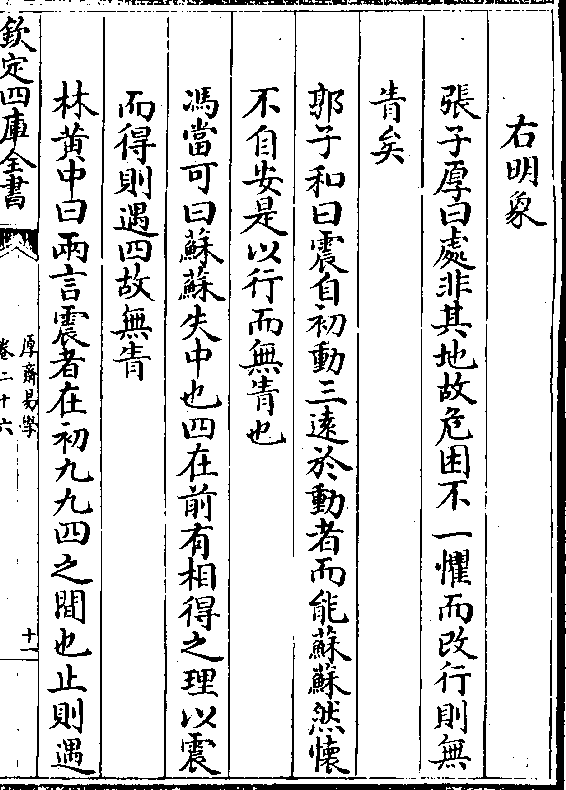 右明象
張子厚曰處非其地故危困不一懼而改行則無
眚矣
郭子和曰震自初動三遠於動者而能蘇蘇然懷
不自安是以行而無眚也
馮當可曰蘇蘇失中也四在前有相得之理以震
而得則遇四故無眚
林黃中曰兩言震者在初九九四之間也止則遇
欽定四庫全書
厚齋易學
卷二十六
十一